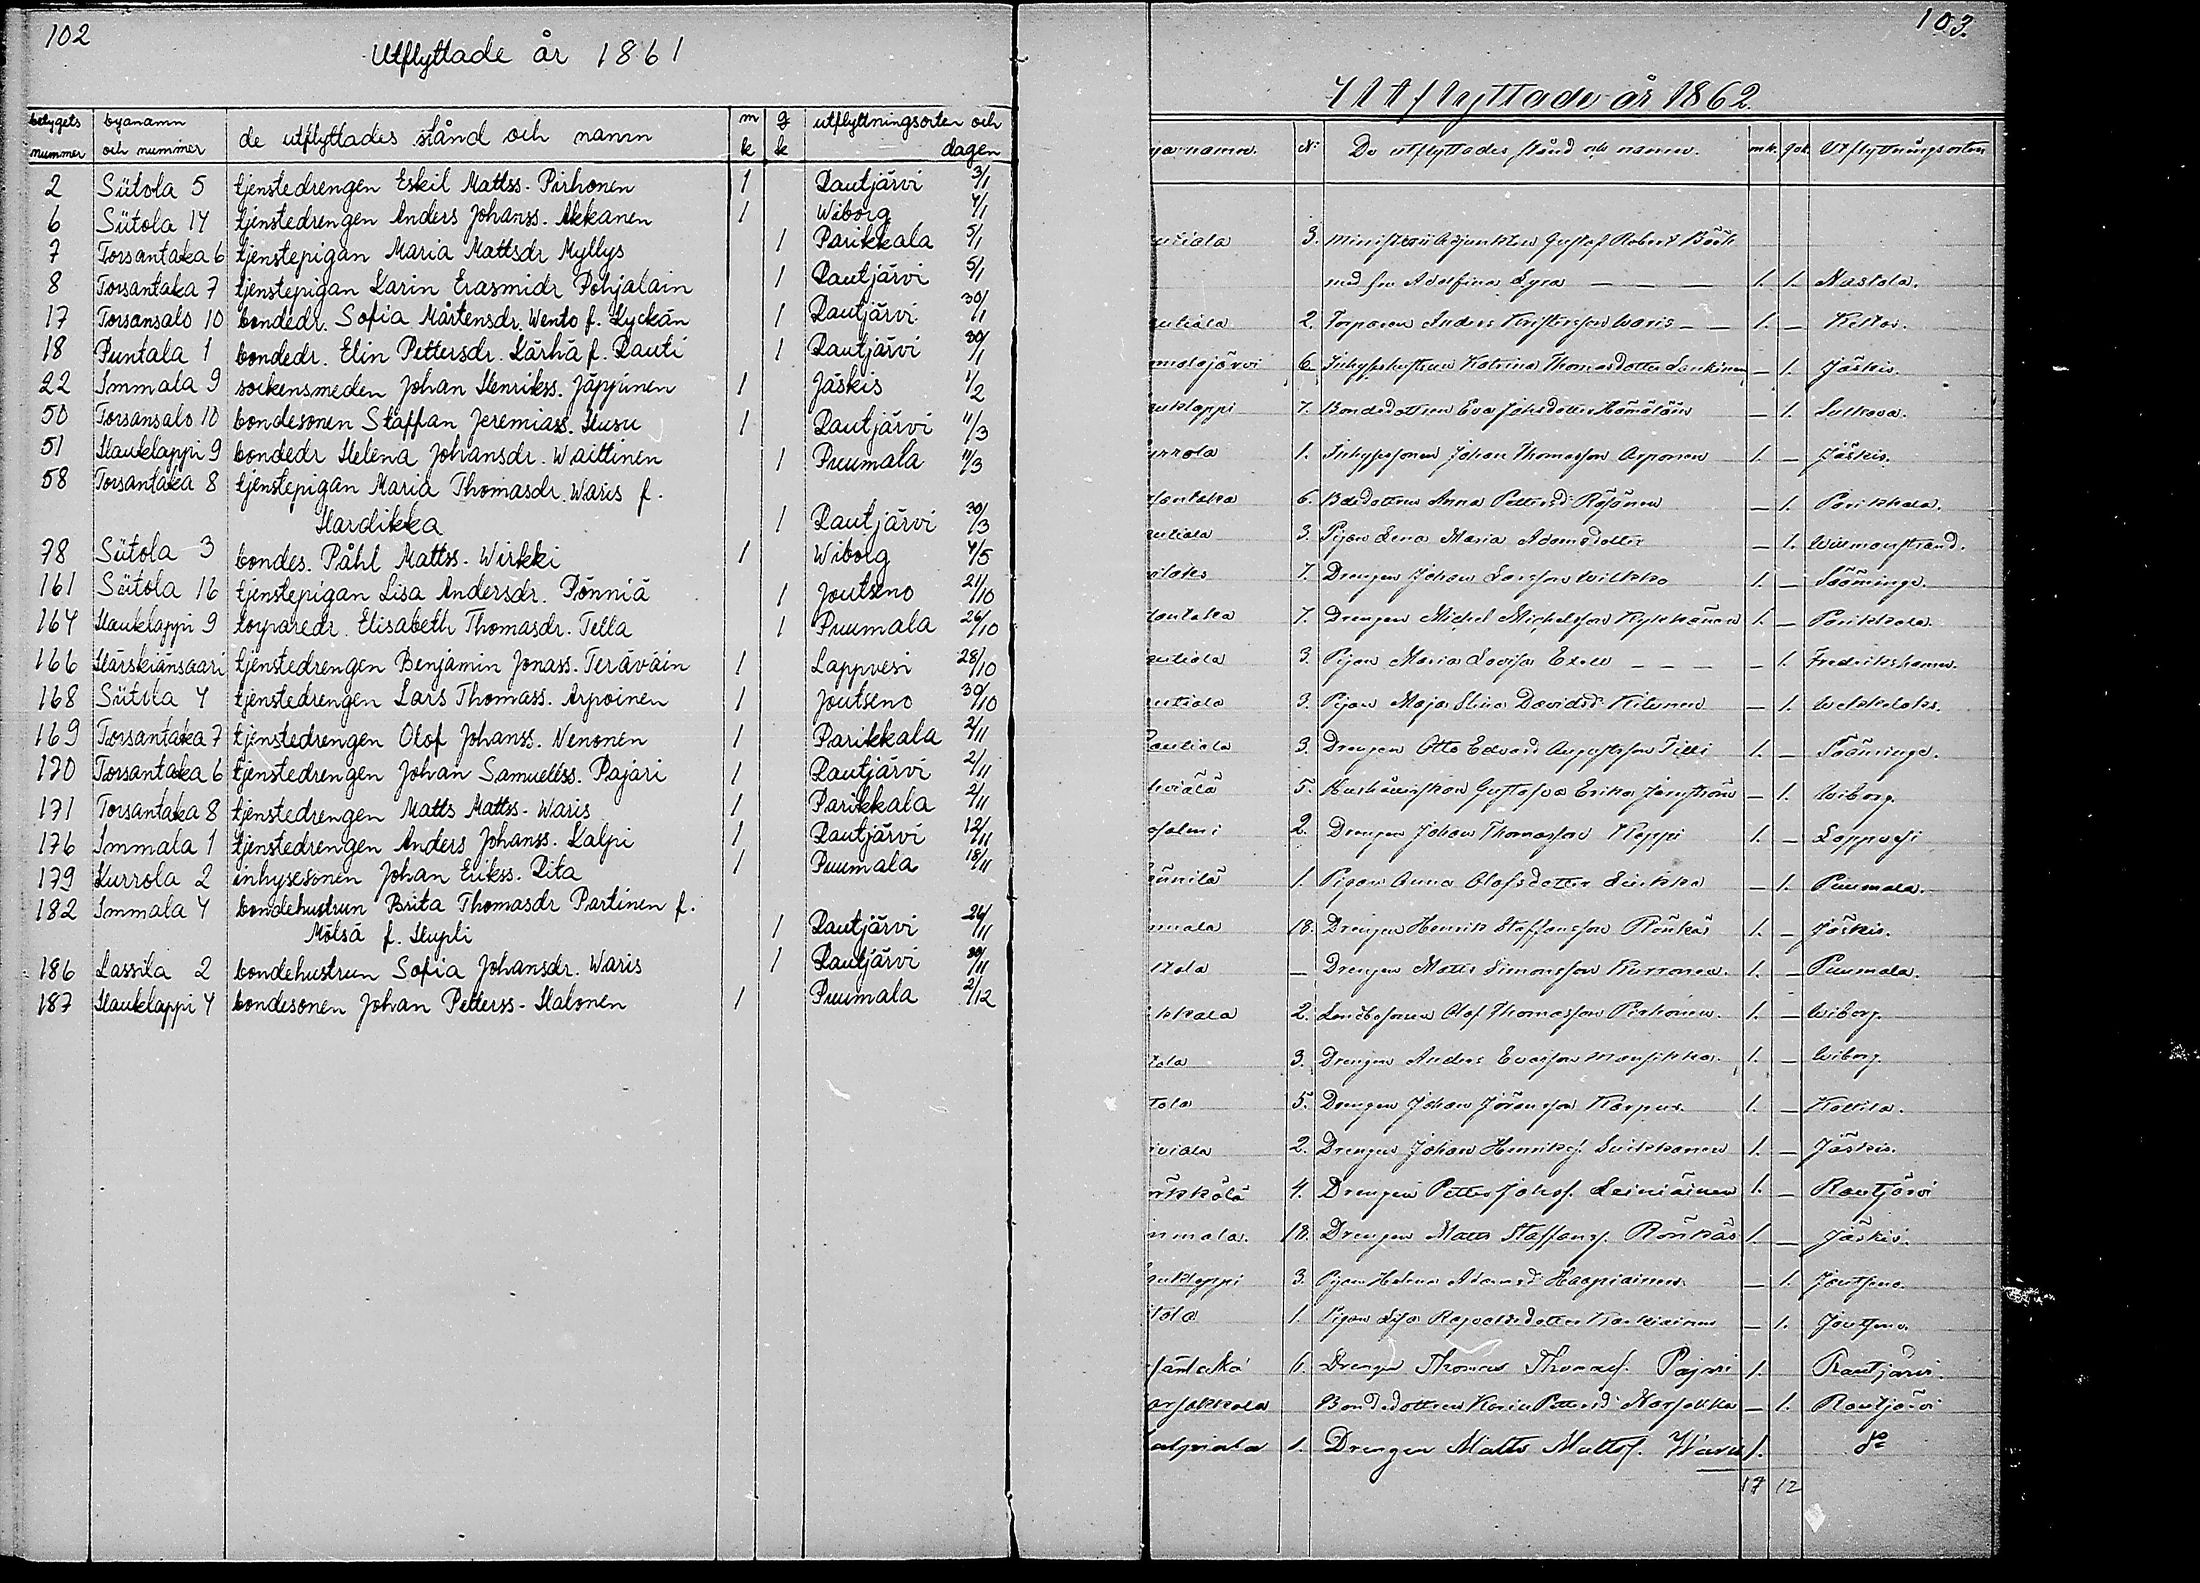 102
Utflyttade år 1861
betygets nummer byanamn och nummer de utflyttades stånd och namn mk gk utflyttningsorten och dagen
2 Siitola 5 tjenstedrengen Eskil Mattss. Pirhonen 1 Rautjärvi 3/1
6 Siitola 14 tjenstedrengen Anders Johanss. Akkanen 1 Wiborg 4/1
7 Torsantaka 6 tjenstepigan Maria Mattsdr Myllys 1 Parikkala 5/1
8 Torsantaka 7 tjenstepigan Karin Erasmidr Pohjalain 1 Rautjärvi 5/1
17 Torsansalo 10 bondedr. Sofia Mårtensdr. Wento f. Lyckän 1 Rautjärvi 30/1
18 Puntala 1 bondedr. Elin Pettersdr. Kärhä f. Rauti 1 Rautjärvi 30/1
22 Immala 9 sockensmeden Johan Henrikss. Jäppinen 1 Jäskis 1/2
50 Torsansalo 10 bondesonen Staffan Jeremiass. Husu 1 Rautjärvi 11/3
51 Hauklappi 9 bondedr Helena Johansdr. Waittinen 1 Puumala 11/3
58 Torsantaka 8 tjenstepigan Maria Thomasdr. Waris f.
Hardikka 1 Rautjärvi 30/3
78 Siitola 3 bondes. Påhl Mattss. Wirkki 1 Wiborg 4/5
161 Siitola 16 tjenstepigan Lisa Andersdr. Pönniä 1 Joutseno 21/10
164 Hauklappi 9 torparedr. Elisabeth Thomasdr. Tella 1 Puumala 26/10
166 Härskiänsaari tjenstedrengen Benjamin Jonass. Teräväin 1 Lappvesi 28/10
168 Siitola 4 tjenstedrengen Lars Thomass. Arpoinen 1 Joutseno 30/10
169 Torsantaka 7 tjenstedrengen Olof Johanss. Nenonen 1 Parikkala 2/11
170 Torsantaka 6 tjenstedrengen Johan Samuelss. Pajari 1 Rautjärvi 2/11
171 Torsantaka 8 tjenstedrengen Matts Mattss. Waris 1 Parikkala 2/11
176 Immala 1 tjenstedrengen Anders Johanss. Kalpi 1 Rautjärvi 12/11
179 Kurrola 2 inhysesonen Johan Erikss. Rita 1 Puumala 18/11
182 Immala 4 bondehustrun Brita Thomasdr Partinen f.
Mölsä f. Hupli 1 Rautjärvi 26/11
186 Lassila 2 bondehustrun Sofia Johansdr. Waris 1 Rautjärvi 30/11
187 Hauklappi 4 bondesonen Johan Petterss. Halonen 1 Puumala 2/12
103.
Utflyttade år 1862.
namn. No De utflyttades stånd och namn. mk. qk. Utflyttningsorten
autiala 3. Ministerii Adjunkten Gustaf Robert
med fru Adolfina Lyra — — — 1. 1. Nastola.
autiala 2. Torparen Anders Christersson Waris — — 1. —
malajärvi 6. Inhyseshustrun Katrina Thomasdotter Lankinen — 1. Jäskis.
auklappi 7. Bondedottren Eva Johsdotter Hämäläin — 1. Sulkava.
urrola 1. Inhysesonen Johan Thomasson Arponen 1. — Jäskis.
santaka 6. Bdedottren Anna Pettersd: Räsönen — 1. Parikkala.
autiala 3. Pigan Lena Maria Adamsdotter — 1. Wilmanstrand.
7. Drengen Johan Larsson Wilkko 1. — Sääminge.
santaka 7. Drengen Michel Michelsson Kykkänen 1. — Parikkala.
autiala 3. Pigan Maria Lovisa — — — — 1. Fredrikshamn.
autiala 3. Pigan Maja Stina Davidsd: — 1. Wekkelaks.
Rautiala 3. Drengen Otto Edvard Augustsson Tilli 1. — Sääminge.
5. Hushållerskan Gustafva Erika — 1. Wiborg.
salmi 2. Drengen Johan Thomasson Reppi 1. — Lappvesi
1. Pigan Anna Olofsdotter — 1. Puumala.
mmala 18. Drengen Henrik Staffansson Rönkäs 1. — Jäskis.
itola — Drengen Matts Simonsson Kurronen. 1. — Puumala.
kkala 2. Landbosonen Olof Thomasson Pirhonen. 1. — Wiborg.
tola 3. Drengen Anders Evaisson Mansikka. 1. — Wiborg.
tola 5. Drengen Johan Göransson Karpus. 1. —
iviala 2. Drengen Johan Henriks. Suikkanen 1. — Jäskis.
4. Drengen Petter Johs. Leiniäinen 1. — Rautjärvi
mmala. 18. Drengen Matts Staffans. Rönkäs 1. — Jäskis.
auklappi 3. Pigan Helena Adamsd: Haapiainen — 1. Joutseno.
tola 1. Pigan Lisa — 1. Joutseno.
santaka 6. Drengen Thomas Thomass. Pajari 1. Rautjärvi.
arjakkala Bondedottren Karin Pettersd: Narjakka — 1. Rautjärvi
1. Drengen Matts Mattss. Waris 1. do
17 12